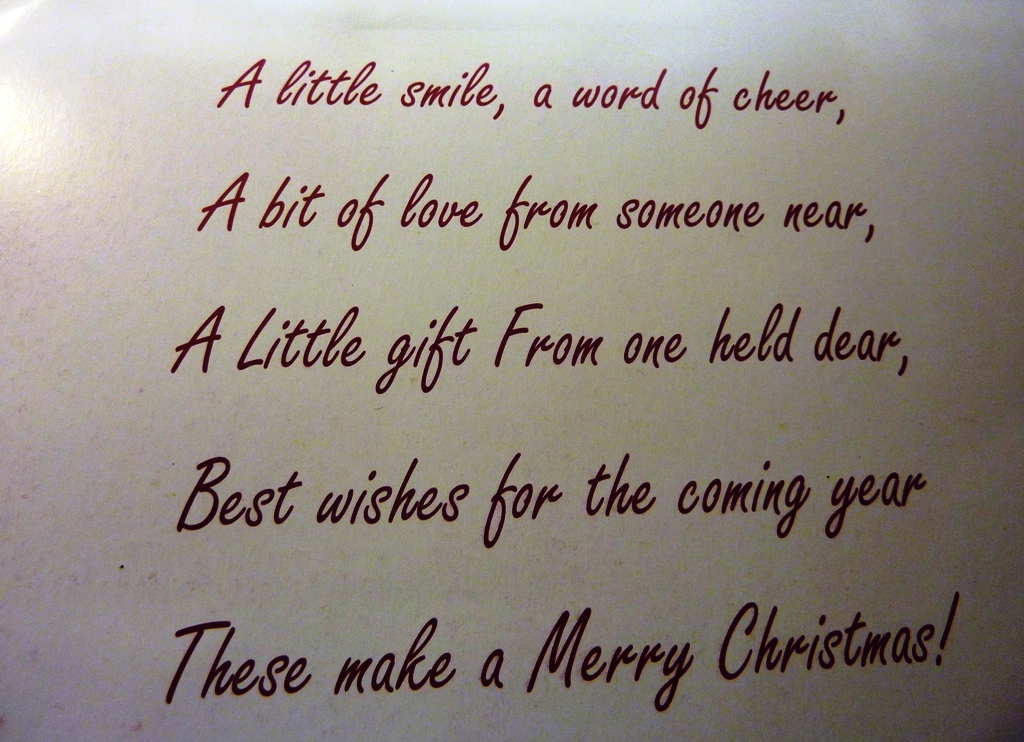 A little smile, a word of cheer,
A bit of love from someone near,
A Little gift From one held dear,
Best wishes for the coming year
These make a Merry Christmas!